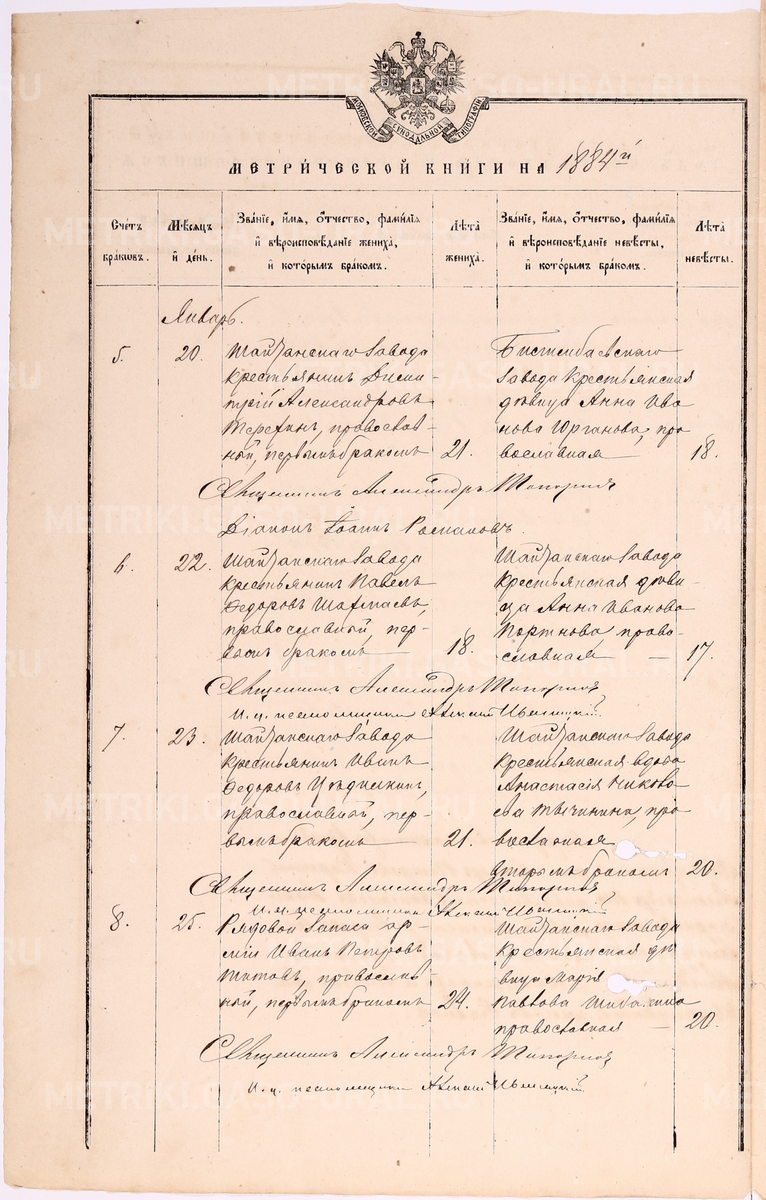 МОСКОВСКОЙ СѴНОДАЛЬНОЙ ТИПОГРАФІИ
МЕТРИЧЕСКОЙ КНИГИ НА 1884й
Счетъ браковъ.
Мѣсяцъ и день.
Званіе, имя, отчество, фамилія и вѣроисповѣданіе жениха, и которымъ бракомъ.
Лѣта жениха.
Званіе, имя, отчество, фамилія и вѣроисповѣданіе невѣсты, и которымъ бракомъ.
Лѣта невѣсты.
Январь.
5. 20. Шайтанскаго завода
крестьянинъ Дими-
трій Александровъ
Терехинъ, православ-
ный, первымъ бракомъ 21.
Билимбаевскаго
завода крестьянская
дѣвица Анна Ива
нова Юрганова, пра
вославная 18.
Священникъ Александръ Топорковъ
Діаконъ Іоаннъ
6. 22. Шайтанскаго завода
крестьянинъ Павелъ
Федоровъ
православный, пер-
вымъ бракомъ 18.
Шайтанскаго завода
крестьянская дѣви
ца Анна Иванова
Портнова право-
славная — 17.
Священникъ Александръ Топорковъ
И. д. псаломщика Алексій
7. 23. Шайтанскаго завода
крестьянинъ Иванъ
Федоровъ
православный, пер-
вымъ бракомъ 21.
Шайтанскаго завода
крестьянская вдова
Анастасія
ева Тычинина, пра
вославная
вторымъ бракомъ 20.
Священникъ Александръ Топорковъ
И. д. псаломщика Алексій
8. 25. Рядовой запаса ар-
міи Иванъ Петровъ
Титовъ, православ-
ный, первымъ бракомъ 24.
Шайтанскаго завода
крестьянская дѣ
вица Марія
Павлова
православная — 20.
Священникъ Александръ Топорковъ
И. д. псаломщика Алексій